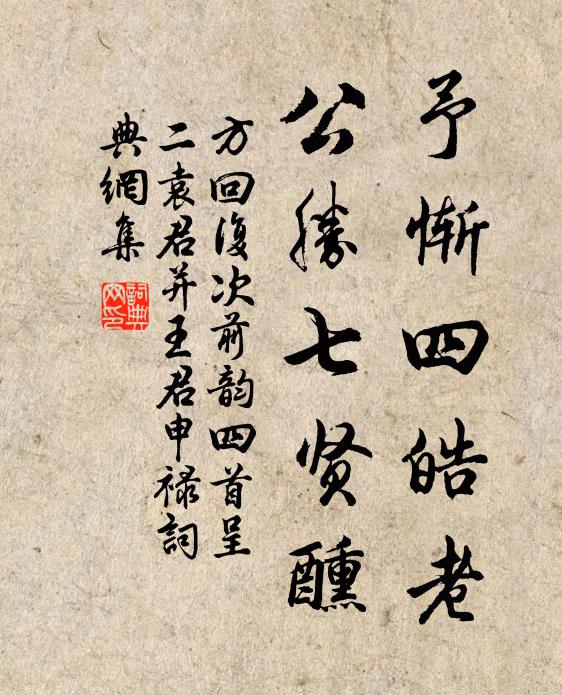 予慚四皓老
公勝七贤醺
方回復次前韵四首呈
二袁君并王君申禄詞
典網集
詞典网印